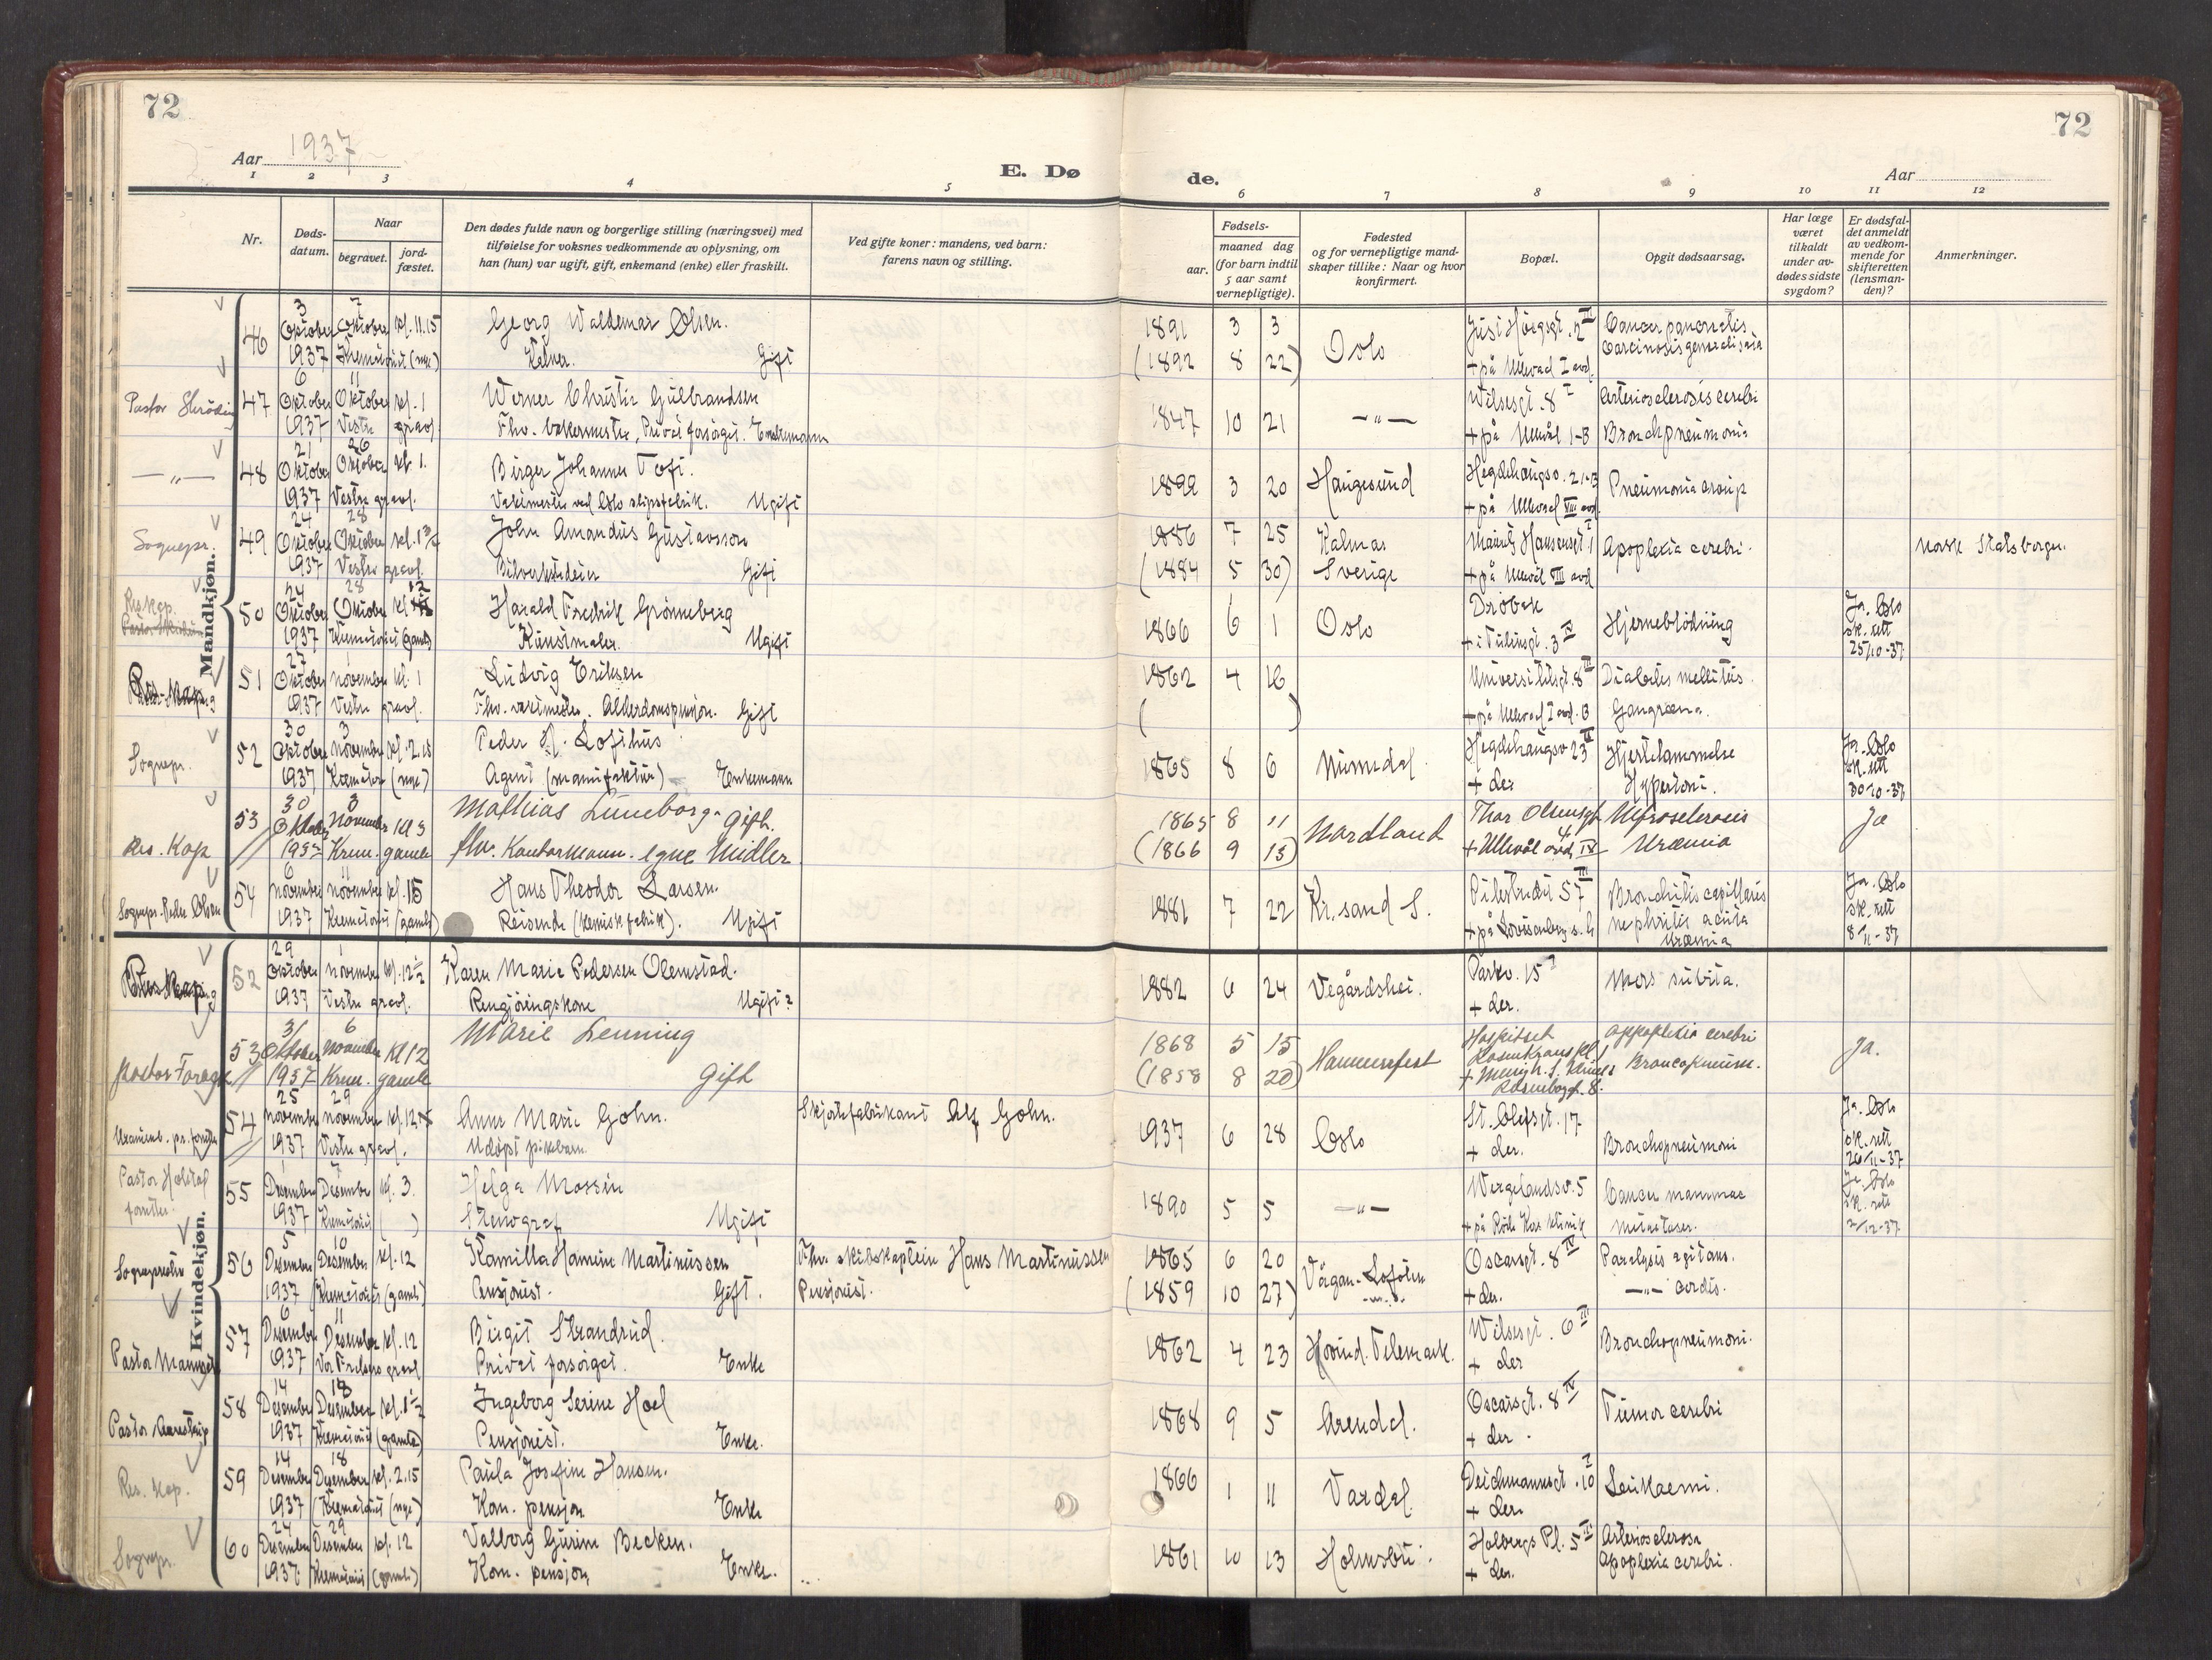 72
72
Aar 1937
E. Dø
de.
Aar
1 2 3 4 5 6 7 8 9 10 11 12
Nr.
Døds-datum.
Naar
begravet.
jord-fæstet.
Den dødes fulde navn og borgerlige stilling (næringsvei) med
tilføielse for voksnes vedkommende av oplysning, om
han (hun) var ugift, gift, enkemand (enke) eller fraskilt.
Ved gifte koner: mandens, ved barn:
farens navn og stilling.
Fødsels-
aar.
maaned dag
(for barn indtil
5 aar samt
vernepligtige).
Fødested
og for vernepligtige mand-
skaper tillike: Naar og hvor
konfirmert.
Bopæl.
Opgit dødsaarsag.
Har læge
været
tilkaldt
under av-
dødes sidste
sygdom?
Er dødsfal-
det anmeldt
av vedkom-
mende for
skifteretten
(lensman-
den)?
Anmerkninger.
Mandkjøn.
46 3 Oktober 1937 7 Oktober kl. 11.15 Krematoriet (nye)
Georg Waldemar Olsen.
Kelner. Gift
1891 3 3
(1892 8 22)
Oslo
+ på Ullevål I avd.
Cancer pancreatis
47 6 Oktober 1937 11 Oktober kl. 1 Vestre gravl.
Werner Christie Gulbrandsen
Fhv. bakermester, Privat forsørget. Enkemann
1847 10 21 —"—
Wilsesgt. 8 I
+ på Ullevål
Arteriosclerosis cerebri
Bronchpneumonia
—"— 48 21 Oktober 1937 26 Oktober kl. 1. Vestre gravl.
Birger Johannes Toft.
Ugift
1899 3 20 Haugesund
+ på Ullevål VIII avd.
Pneumonia croup
Sognepr. 49 24 Oktober 1937 28 Oktober Vestre gravl.
John Amandus Gustavsson
Gift
1886 7 25
(1884 5 30)
Kalmar
Sverige
+ på Ullevål VIII avd
Apoplexia cerebri.
Norsk Statsborger.
50 24 Oktober 1937 28 Oktober kl 12 Krematoriet (gamle)
Harald Fredrik Grønneberg
Kunstmaler. Ugift
1866 6 1 Oslo
Drøbak
Hjerneblødning
Ja. Oslo
sk. rett
25/10-37
51 27 Oktober 1937 1 november kl. 1 Vestre gravl.
Ludvig Eriksen
Alderdomspensjon. Gift
1862 4 16
( )
Universitetsgt. 8 III
Diabetes mellitus.
Gangræna.
Sognepr. 52 30 Oktober 1937 3 november kl. 2.15 Kremator (nye)
Peder H. Lofthus
Agent (manufaktur) Enkemann
1865 8 6
Hegdehaugsv 23 II
+ der
Hjertelammelse
Hypertoni.
Ja. Oslo
sk. rett
30/10-37
Res. Kap 53 30 Oktober 1937 3 November Kl 3 Krem. gamle
Mathias Lüneborg. gift.
fhv. Kontormann. egne Midler
1865 8 11
(1866 9 13)
Nordland
Thor Olsensgt 4
+ Ullevål avd. IV
Nefrosclerosis
Uræmia
Ja
Sognepr. Peder Olsen 54 6 november 1937 11 november kl. 15 Krematoriet (gamle)
Hans Theodor Larsen.
Reisende (kemisk fabrik). Ugift
1881 7 22 Kr.sand S.
Pilestredet 57 III
+ på Lovisenberg s.h
Bronchitis capillaris
nephritis acuta
Uræmia
Ja. Oslo
sk. rett
8/11-37
Kvindekjøn.
52 29 Oktober 1937 1 november kl. 12½ Vestre gravl.
Karen Marie Pedersen Olemstad.
Rengjøringskone Ugift?
1882 6 24 Vegårdshei.
Parkv. 15 I
+ der.
Mors subita.
53 31 Oktober 1937 6 November Kl 12 Krem. gamle
Marie Lenning
Gift
1868 5 15
(1858 8 20)
Hammerfest
Hospitset
Rosenkrans pl. 1
Appoplexia cerebri
Ja.
54 25 november 1937 29 november Vestre gravl.
Anne Marie Gohn.
Udøpt pikebarn
Skjortefabrikant Alf Gohn.
1937 6 28 Oslo
St. Olafsgt. 17
+ der.
Bronchopneumoni
Ja. Oslo
sk. rett
26/11-37
55 1 Desember 1937 7 Desember kl. 3. Krematoriet ( )
Helga Mossin
Stenograf Ugift
1890 5 5 —"—
Wergelandsv. 5
+ på Røde Kors Klinik
Cancer mammae
Metastaser.
Ja. Oslo
sk. rett
2/12-37
56 5 Desember 1937 10 Desember kl. 12 Krematoriet (gamle)
Kamilla Hamine Martinussen
Pensjonist. Gift.
Fhv. skibskaptein Hans Martinussen
Pensjonist.
1865 6 20
(1859 10 27)
Vågan - Lofoten
Oscarsgt. 8 IV
+ der.
Paralysis agitans.
—"— cordis.
57 6 Desember 1937 11 Desember kl. 12 Vor Frelsers gravl
Birgit Strandrud.
Privat forsørget. Enke
1862 4 23 Hovind. Telemark.
Wilsesgt. 6 III
+ der
Bronchopneumoni.
58 14 Desember 1937 18 Desember kl. 1½ Krematoriet (gamle)
Ingeborg Serine Hoel
Pensjonist. Enke.
1868 9 5 Arendal.
Oscarsgt. 8 IV
+ der.
Tumor cerebri
Res. kap. 59 14 Desember 1937 18 Desember kl. 2.15 Krematoriet (nye)
Paula Josefine Hansen.
Kom. pensjon Enke
1866 1 11 Vardal
Deichmannsgt. 10 I
+ der
Leukaemi.
Sognepr. 60 24 Desember 1937 29 Desember kl. 12 Krematoriet (gamle)
Valborg Gurine Becken.
Kom. pensjon Enke.
1861 10 13 Holmsbu.
Holbergs Pl. 5 II
+ der.
Arteriosclerose
Apoplexia cerebri.